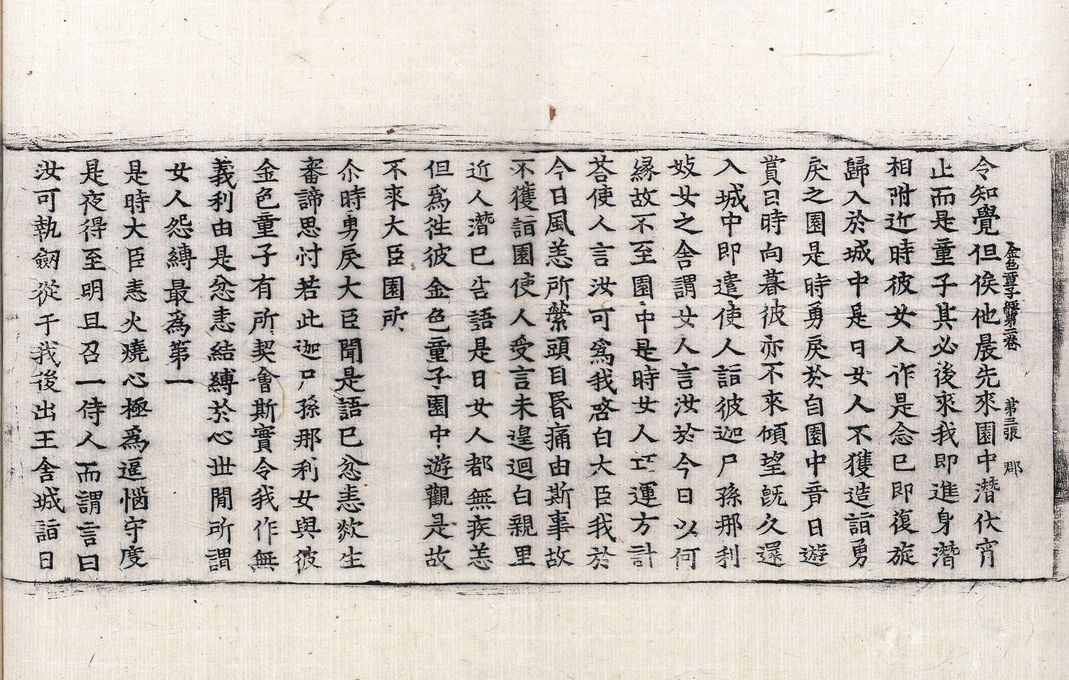 令知覺但俟他晨先來園中潛伏宵
金色童子經第二卷 第三張 郡
止而是童子其必後來我即進身潛
相附近時彼女人作是念已即復旋
歸入於城中是日女人不獲造詣勇
戾之園是時勇戾於自園中音日遊
賞曰時向暮彼亦不來傾望旣久還
入城中即遣使人詣彼迦尸孫那利
妓女之舍謂女人言汝於今日以何
緣故不至園中是時女人工運方計
荅使人言汝可爲我咨白大臣我於
今日風恙所縈頭目昏痛由斯事故
不獲詣園使人受言未遑迴白親里
近人潛已告語是日女人都無疾恙
但爲徃彼金色童子園中遊觀是故
不來大臣園所
尒時勇戾大臣聞是語已忿恚欻生
審諦思忖若此迦尸孫那利女與彼
金色童子有所契會斯實令我作無
義利由是忿恚結縛於心世閒所謂
女人怨縛最爲第一
是時大臣恚火燒心極爲逼惱守度
是夜得至明旦召一侍人而謂言曰
汝可執劒從于我後出王舍城詣日